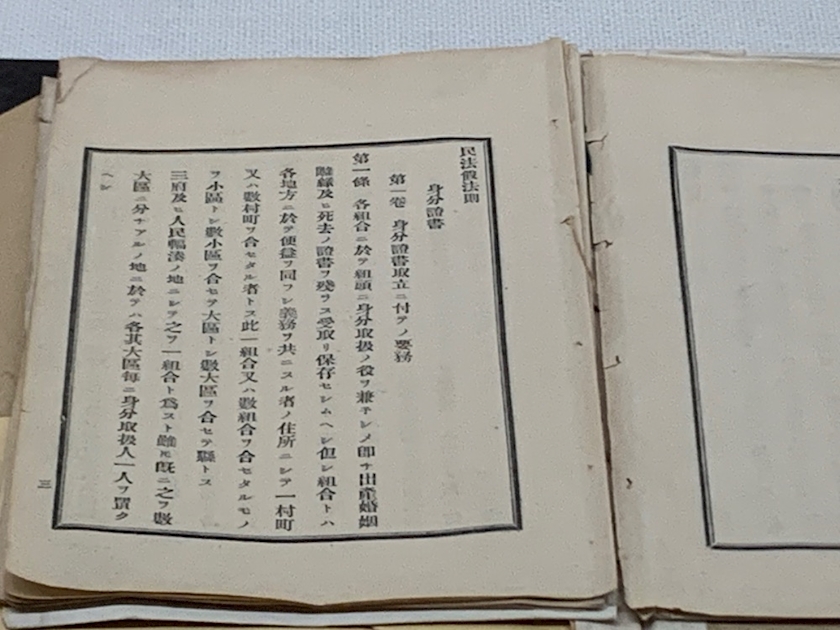 民法假法則
身分證書
第一卷 身分證書取立ニ付テノ要務
第一條 各組合ニ於テ組頭ニ身分取扱ノ役ヲ兼子シメ即チ出產婚姻
離緣及ヒ死去ノ證書ヲ殘ラス受取リ保存セシムヘシ但シ組合トハ
各地方ニ於テ便益ヲ同フシ義務ヲ共ニスル者ノ住所ニシテ一村町
又ハ數村町ヲ合セタル者トス此一組合又ハ數組合ヲ合セタルモノ
ヲ小區トシ數小區ヲ合セテ大區トシ數大區ヲ合セテ縣トス
三府及ヒ人民輻湊ノ地ニシテ之ヲ一組合ト爲スト雖𪜈既ニ之ヲ數
大區ニ分チアルノ地ニ於テハ各其大區每ニ身分取扱人一人ヲ置ク
ヘシ
三